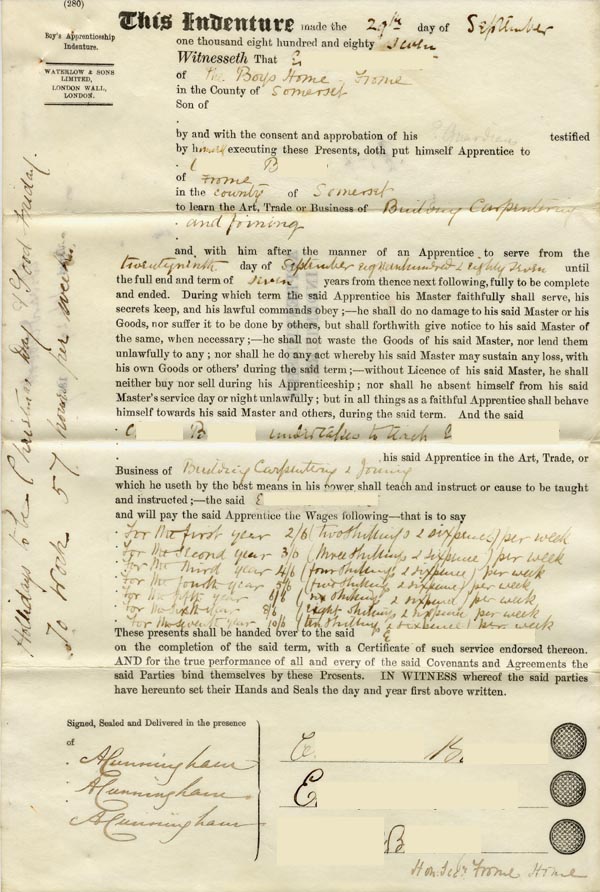 (280)
Boy's Apprenticeship
Indenture.
WATERLOW & SONS
LIMITED,
LONDON WALL,
LONDON.
This Indenture made the 29th day of September
one thousand eight hundred and eighty seven
Witnesseth That E
of The Boys Home Frome
in the County of Somerset
Son of
by and with the consent and approbation of his Guardian testified
by executing these Presents, doth put himself Apprentice to
B
of Frome
in the county of Somerset
to learn the Art, Trade or Business of Building Carpentering
and joining
and, with him after the manner of an Apprentice to serve from the
twentyninth day of September eighteenhundred & eighty seven until
the full end and term of seven years from thence next following, fully to be complete
and ended. During which term the said Apprentice his Master faithfully shall serve, his
secrets keep, and his lawful commands obey;—he shall do no damage to his said Master or his
Goods, nor suffer it to be done by others, but shall forthwith give notice to his said Master of
the same, when necessary;—he shall not waste the Goods of his said Master, nor lend them
unlawfully to any; nor shall he do any act whereby his said Master may sustain any loss, with
his own Goods or others' during the said term;—without Licence of his said Master, he shall
neither buy nor sell during his Apprenticeship; nor shall he absent himself from his said
Master's service day or night unlawfully; but in all things as a faithful Apprentice shall behave
himself towards his said Master and others, during the said term. And the said
C B undertakes to teach E
his said Apprentice in the Art, Trade, or
Business of Building Carpentering & Joining
which he useth by the best means in his power shall teach and instruct or cause to be taught
and instructed;—the said E
and will pay the said Apprentice the Wages following—that is to say
For the first year 2/6 (two shillings & sixpence) per week
For the Second year 3/6 (three shilling & sixpence) per week
For the Third year 4/6 (four shilling & sixpence) per week
For the fourth year 5/6 shilling & sixpence) per week
For the fifth year 6/6 (six shilling & sixpence) per week
For the sixth year 8/6 (eight shilling & sixpence) per week
For the seventh year 10/6 (ten shilling & sixpence) per week
These presents shall be handed over to the said E
on the completion of the said term, with a Certificate of such service endorsed thereon.
AND for the true performance of all and every of the said Covenants and Agreements the
said Parties bind themselves by these Presents. IN WITNESS whereof the said parties
have hereunto set their Hands and Seals the day and year first above written.
Hollidays to be Christmas day & Good Friday.
To work 57 hours per week.
Signed, Sealed and Delivered in the presence
of
A Cunningham
A Cunningham
A Cunningham
C B.
E.
B
Hon: Secy Frome Home